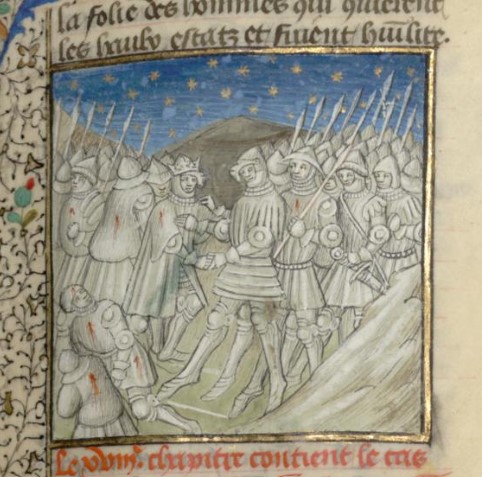 la folie des hommes qui quierent
les haulx estatz et fuient humilite.
Le xviije. chapitre contient le cas